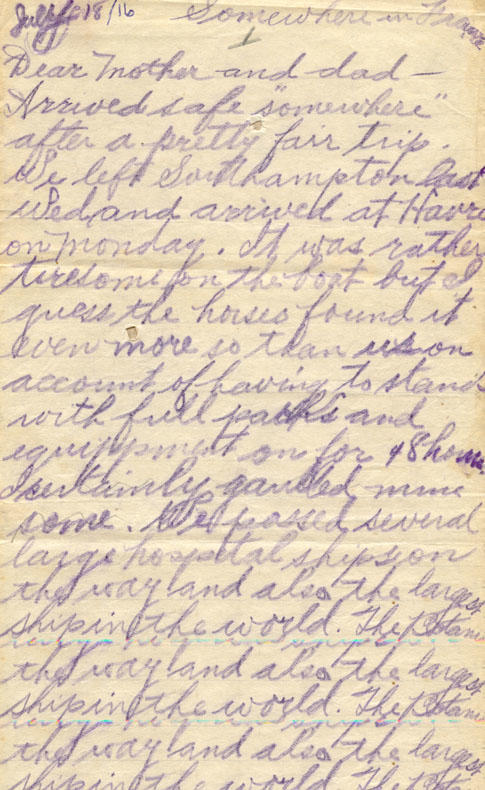 July 18/16
Somewhere in France
1
Dear Mother and dad -
Arrived safe "somewhere"
after a pretty fair trip.
We left Southampton last
Wed, and arrived at Havre
on Monday. It was rather
tiresome on the boat but I
guess the horses found it
even more so than us on
account of having to stand
with full packs and
equippment on for 48 hours.
I certainly mine
some. We passed several
large hospital ships on
the way and also the largest
ship in the world. The
the way and also the largest
ship in the world. The
the way and also the largest
ship in the world. The